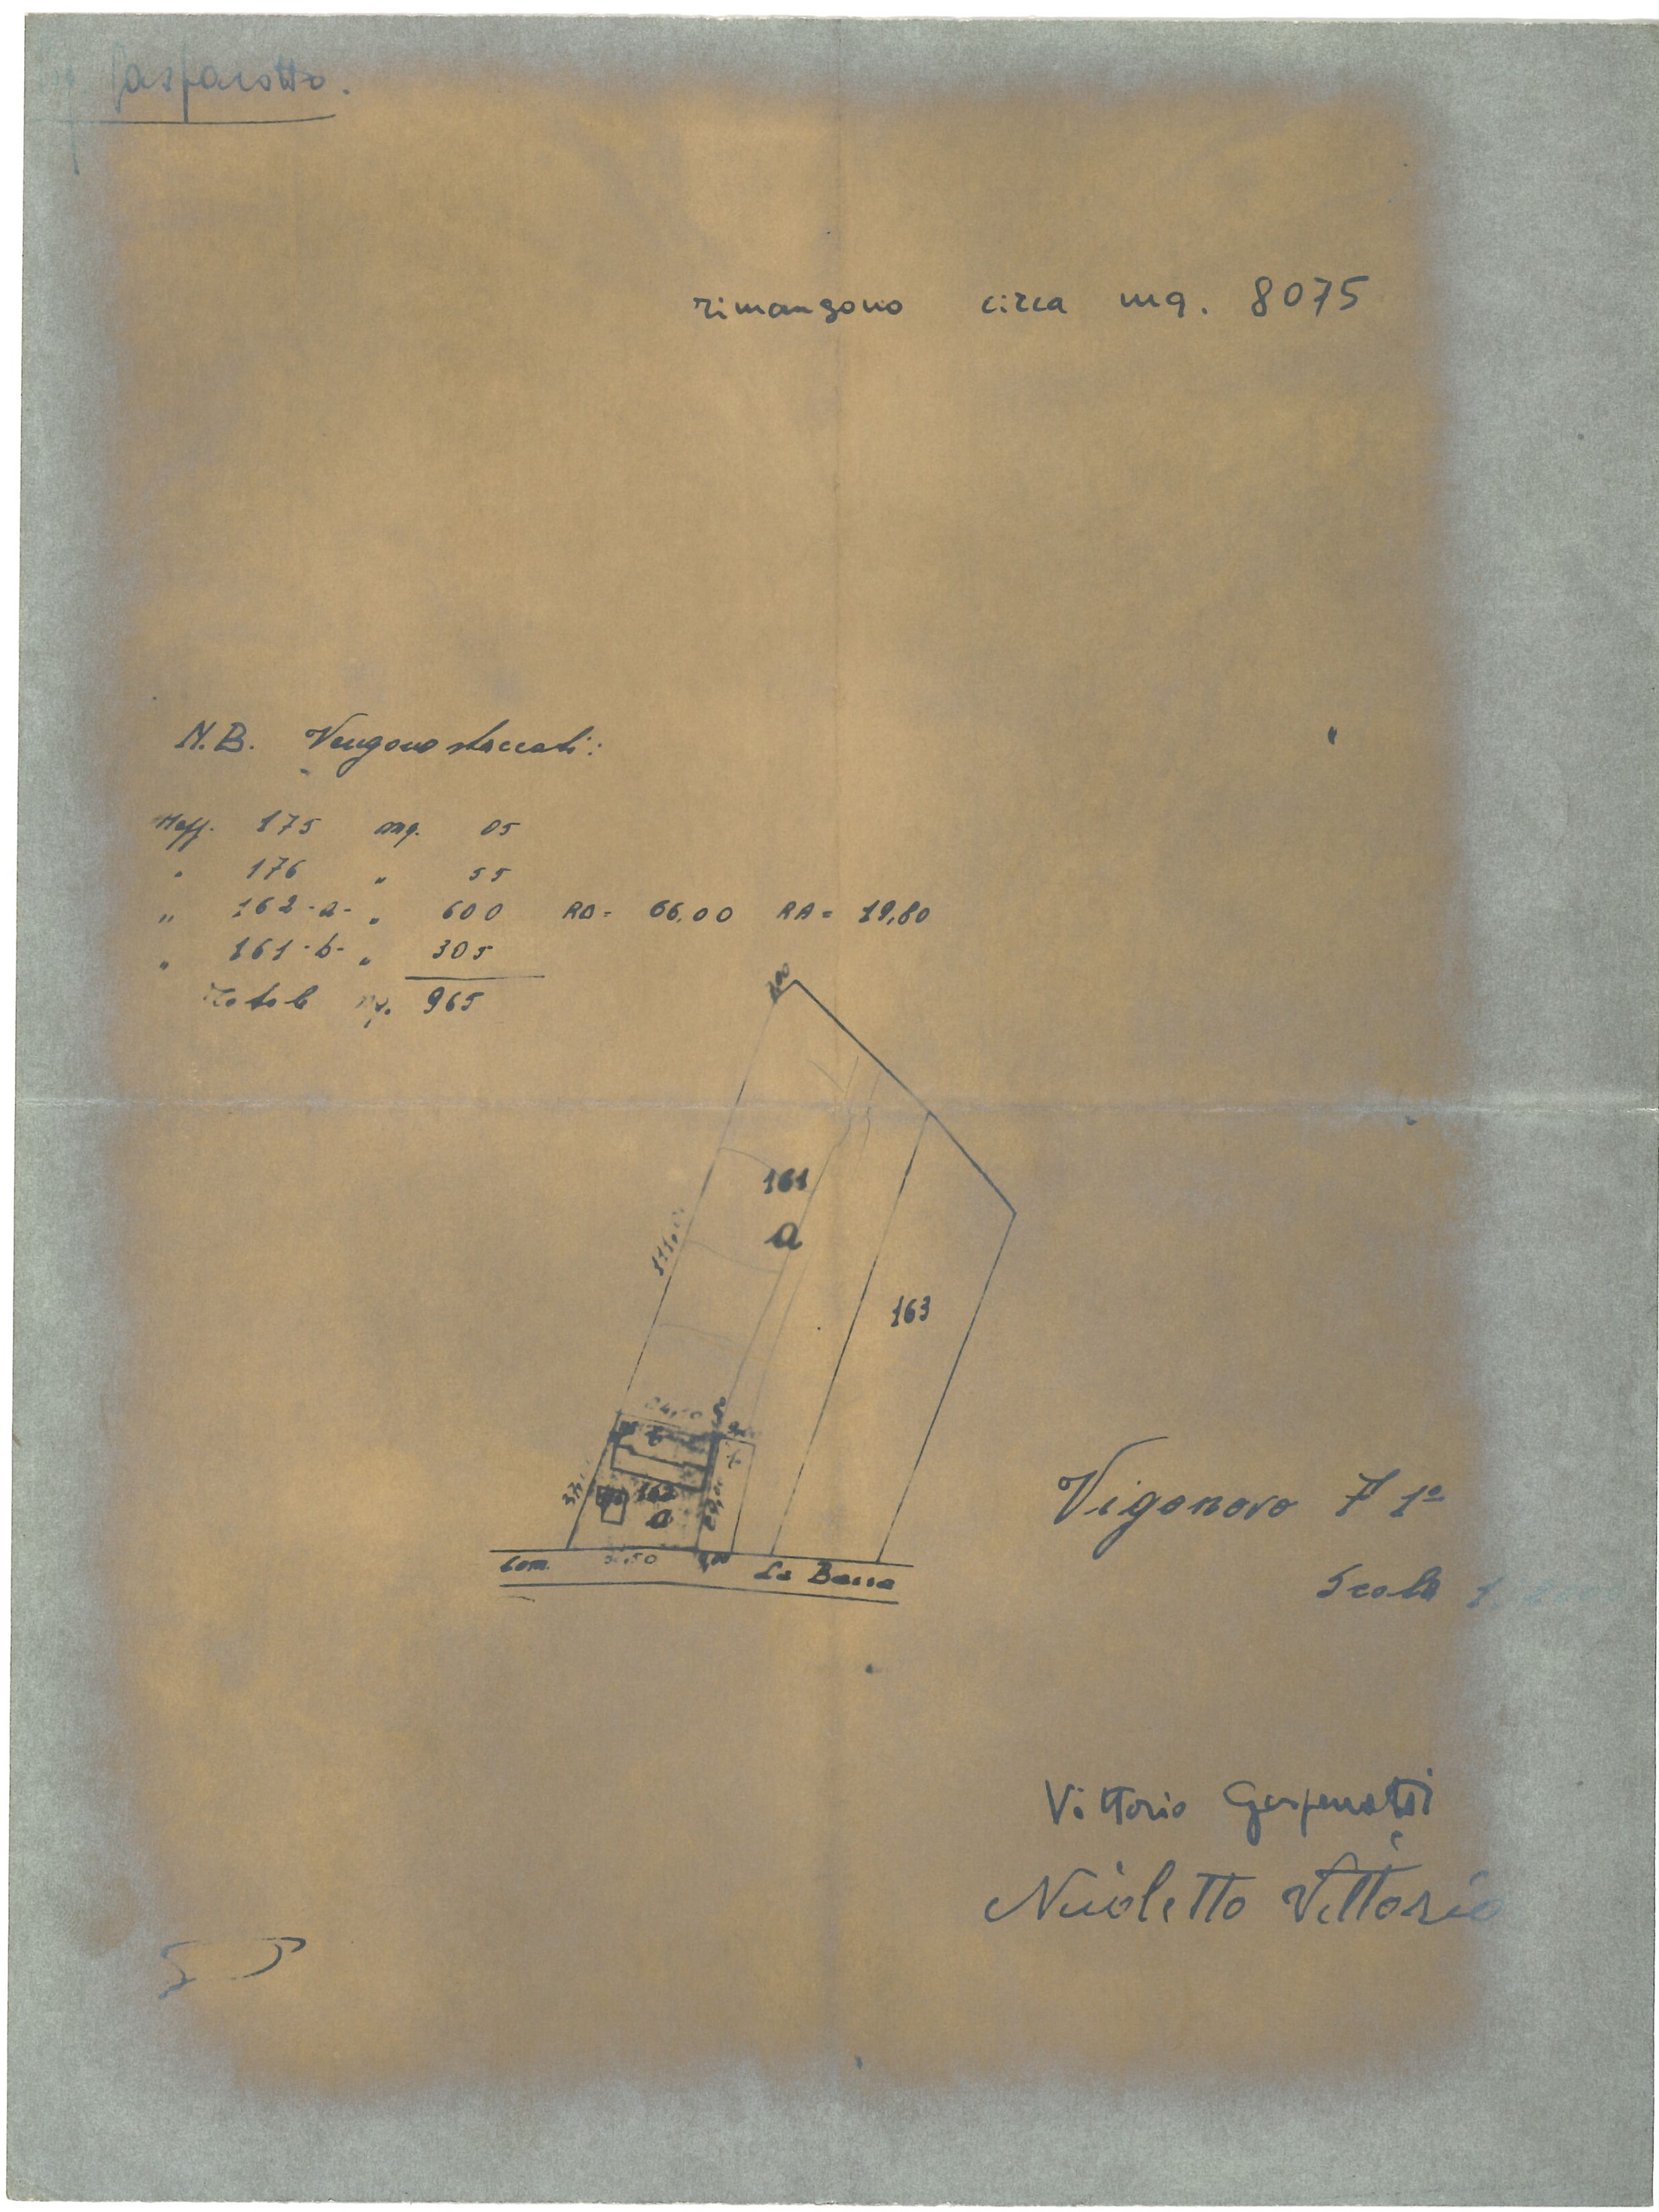 Gasparotto.
rimangono circa mq. 8075
N.B. Vengono staccati:
Mapp. 175 mq. 05
" 176 " 55
" 162-a- " 600 RD= 66,00 RA= 19,80
" 161-b- " 305
Totale mq. 965
161
a
111,0
163
24,50
b
162
a
Com. La Bassa
Vigonovo F 1º
Scala
Vittorio Gasparotto
Nicoletto Vittorio